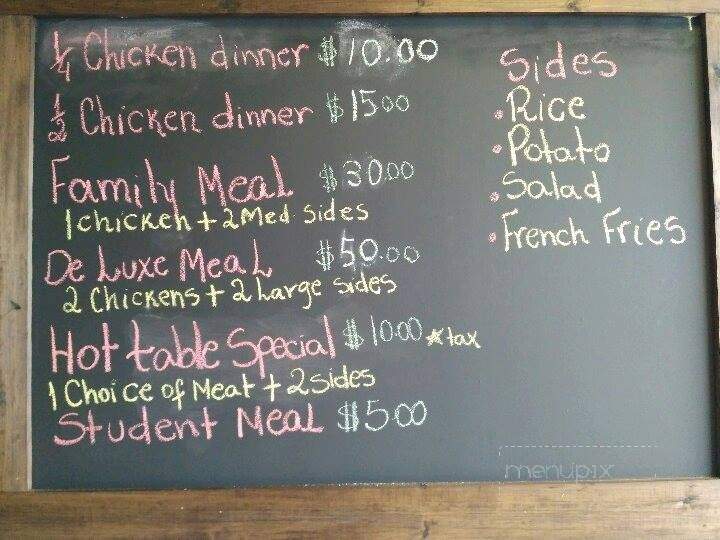 1/4 Chicken dinner $10.00
1/2 Chicken dinner $15.00
Family Meal $30.00
1 chicken + 2 Med. sides
De Luxe Meal $50.00
2 Chickens + 2 Large sides
Hot table Special $10.00 *tax
1 Choice of Meat + 2 sides
Student Meal $5.00
Sides
• Rice
• Potato
• Salad
• French Fries
menupix